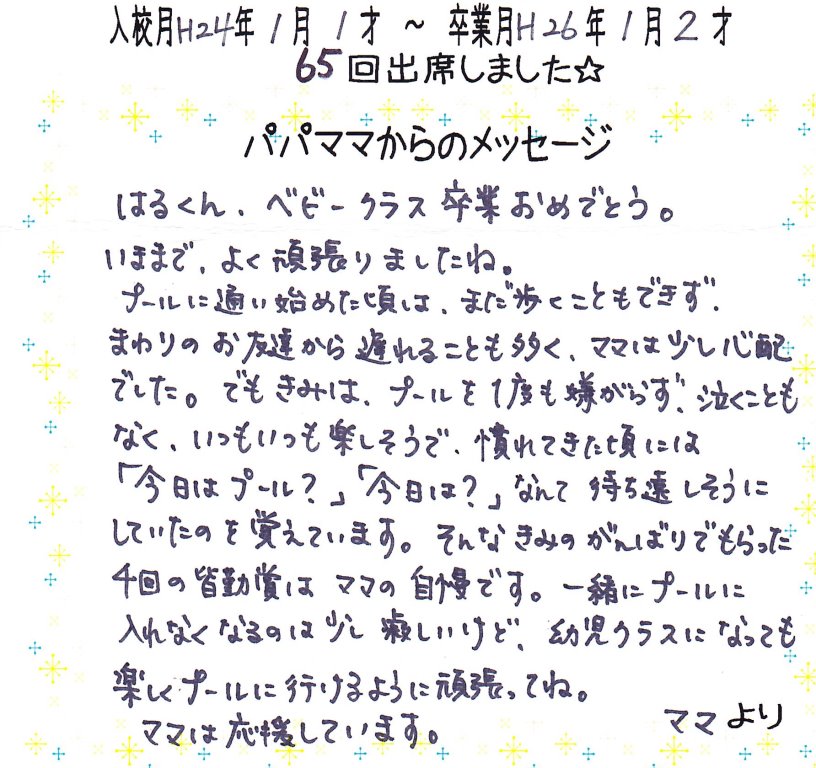 入校月H24年1月1才 ～ 卒業月H26年1月2才
65回出席しました☆
パパママからのメッセージ
はるくん、ベビークラス卒業おめでとう。
いままで、よく頑張りましたね。
プールに通い始めた頃は、まだ歩くこともできず、
まわりのお友達から遅れることも多く、ママは少し心配
でした。でもきみは、プールを1度も嫌がらず、泣くことも
なく、いつもいつも楽しそうで、慣れてきた頃には
「今日はプール?」「今日は?」なんて待ち遠しそうに
していたのを覚えています。そんなきみのがんばりでもらった
4回の皆勤賞はママの自慢です。一緒にプールに
入れなくなるのは少し寂しいけど、幼児クラスになっても
楽しくプールに行けるように頑張ってね。
ママは応援しています。
ママより